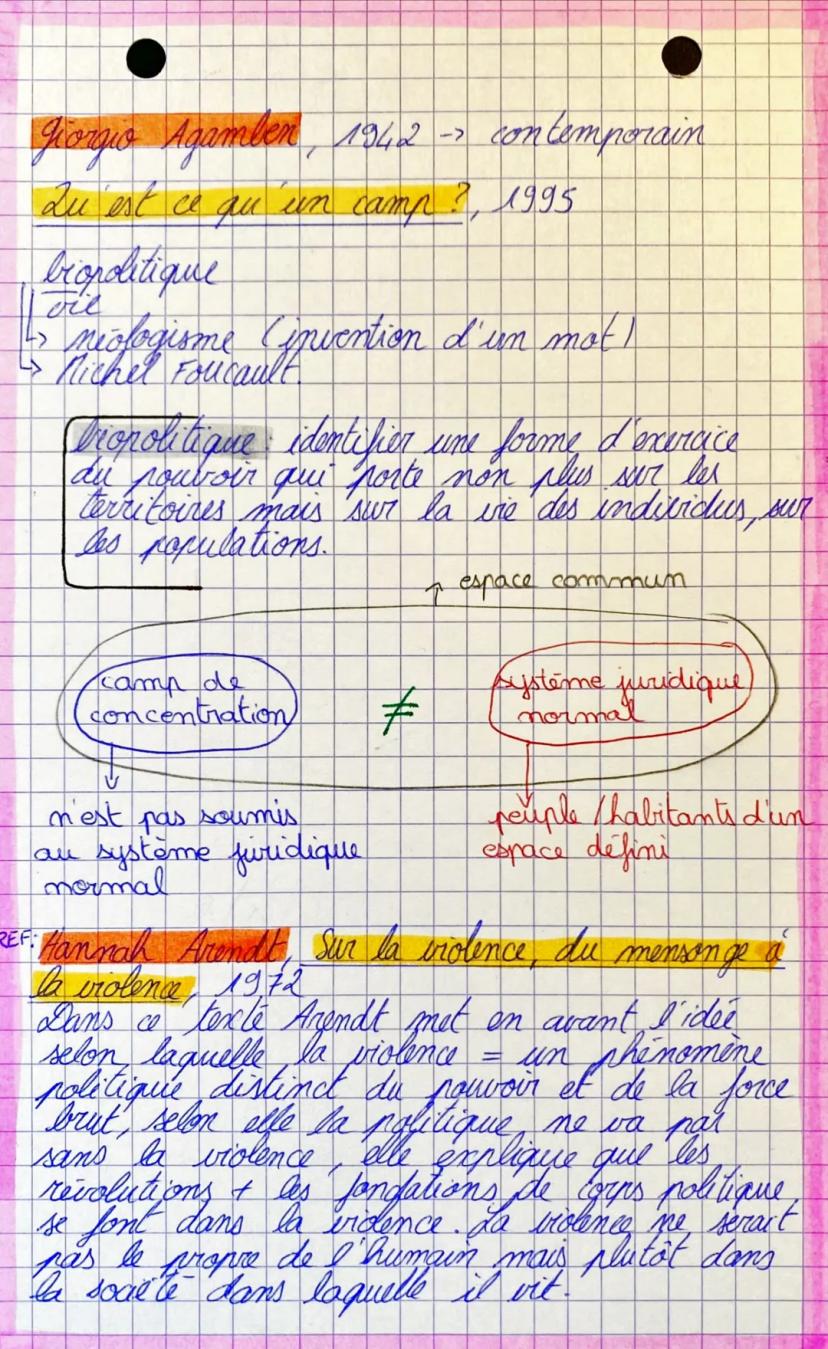 Giorgio Agamben, 1942 -> contemporain
Qu'est ce qu'un camp ?, 1995
biopolitique
vie
-> néologisme (invention d'un mot)
-> Michel Foucault.
biopolitique : identifier une forme d'exercice
du pouvoir qui porte non plus sur les
territoires mais sur la vie des individus, sur
les populations.
↑ espace commun
camp de
concentration
≠
système juridique
normal
n'est pas soumis
au système juridique
normal
peuple / habitants d'un
espace défini
REF: Hannah Arendt, Sur la violence, du mensonge à
la violence, 1972
Dans ce texte Arendt met en avant l'idée
selon laquelle la violence = un phénomène
politique distinct du pouvoir et de la force
brut, selon elle la politique ne va pas
sans la violence, elle explique que les
révolutions + les fondations de corps politique
se font dans la violence. La violence ne serait
pas le propre de l'humain mais plutôt dans
la société dans laquelle il vit.